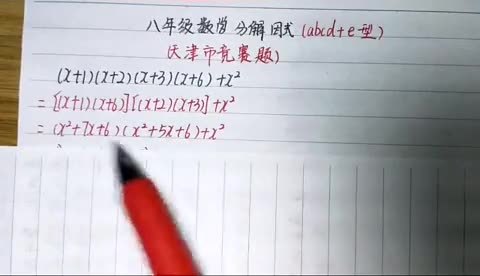 八年级数学 分解因式(abcd+e型)
(天津市竞赛题)
(x+1)(x+2)(x+3)(x+6)+x²
=[(x+1)(x+6)][(x+2)(x+3)]+x²
=(x²+7x+6)(x²+5x+6)+x²